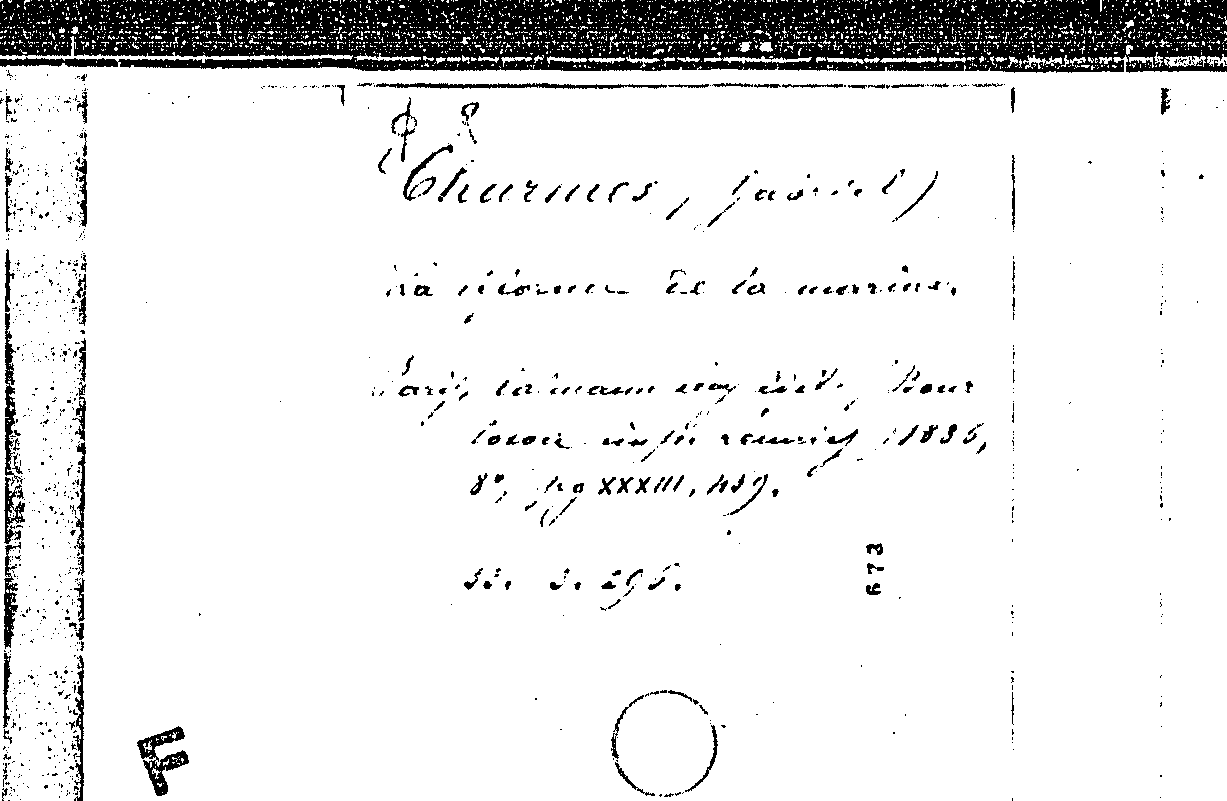 (Charmes, Gabriel)
La réforme de la marine.
Paris, Calmann Lévy édit., Bour
loton imp. réunies, 1886,
8°, pg XXXIII, 459.
33. 3. 296.
673
F